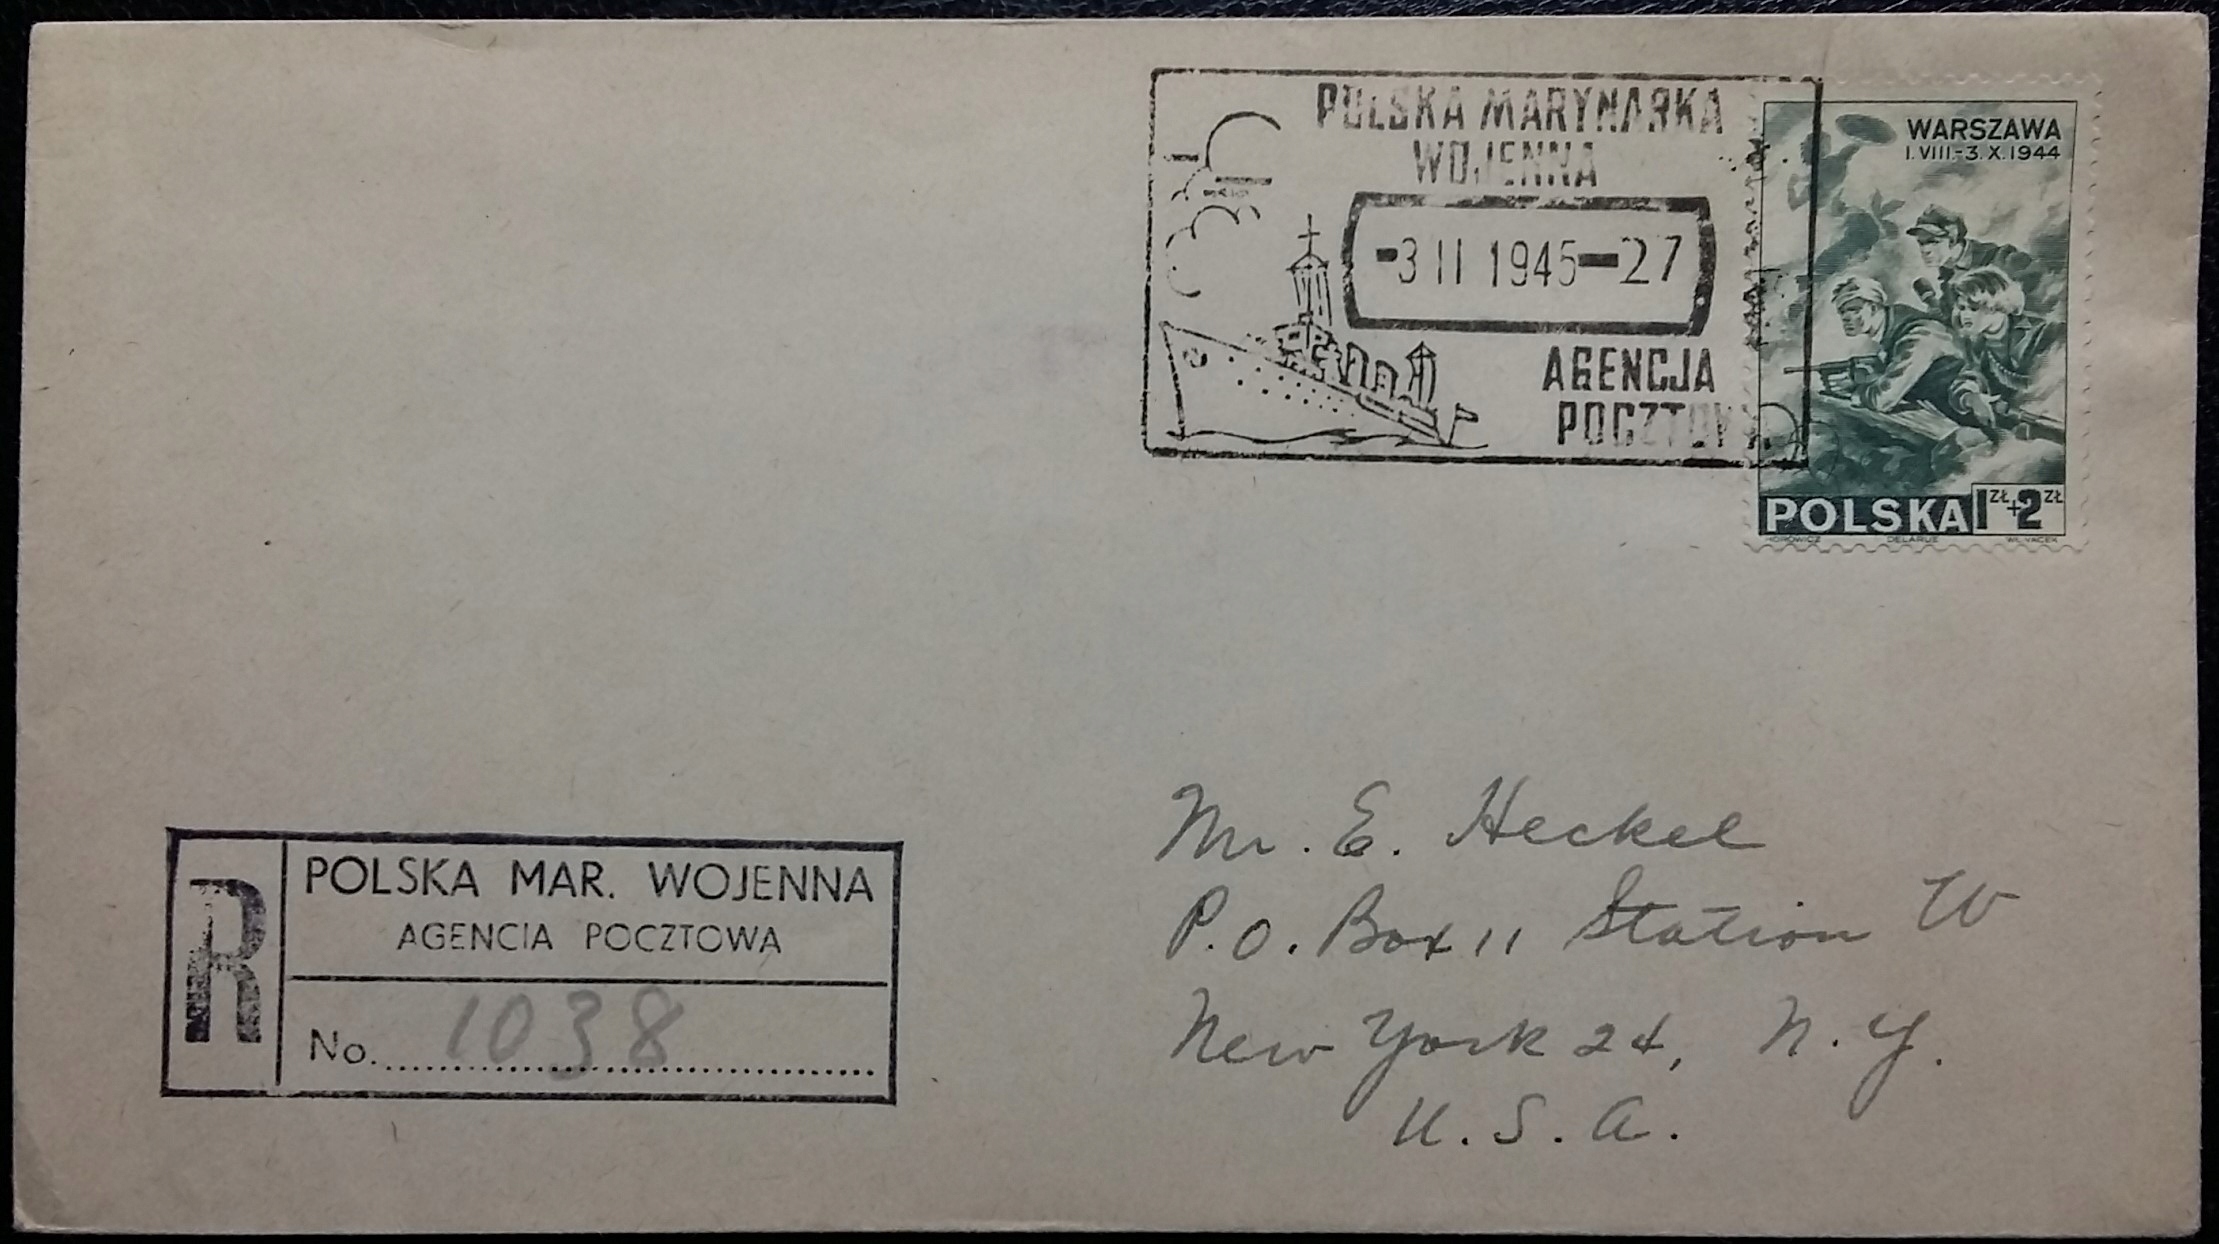 POLSKA MARYNARKA
WOJENNA
-3 II 1945-27
AGENCJA
WARSZAWA
I.VIII.-3.X.1944
POLSKA 1 ZŁ + 2 ZŁ
HOROWICZ DELARUE WŁ. VACEK
Mr. E. Heckel
P.O. Box 11 Station W
New York 24, N.Y.
U.S.A.
R
POLSKA MAR. WOJENNA
AGENCIA POCZTOWA
No. 1038